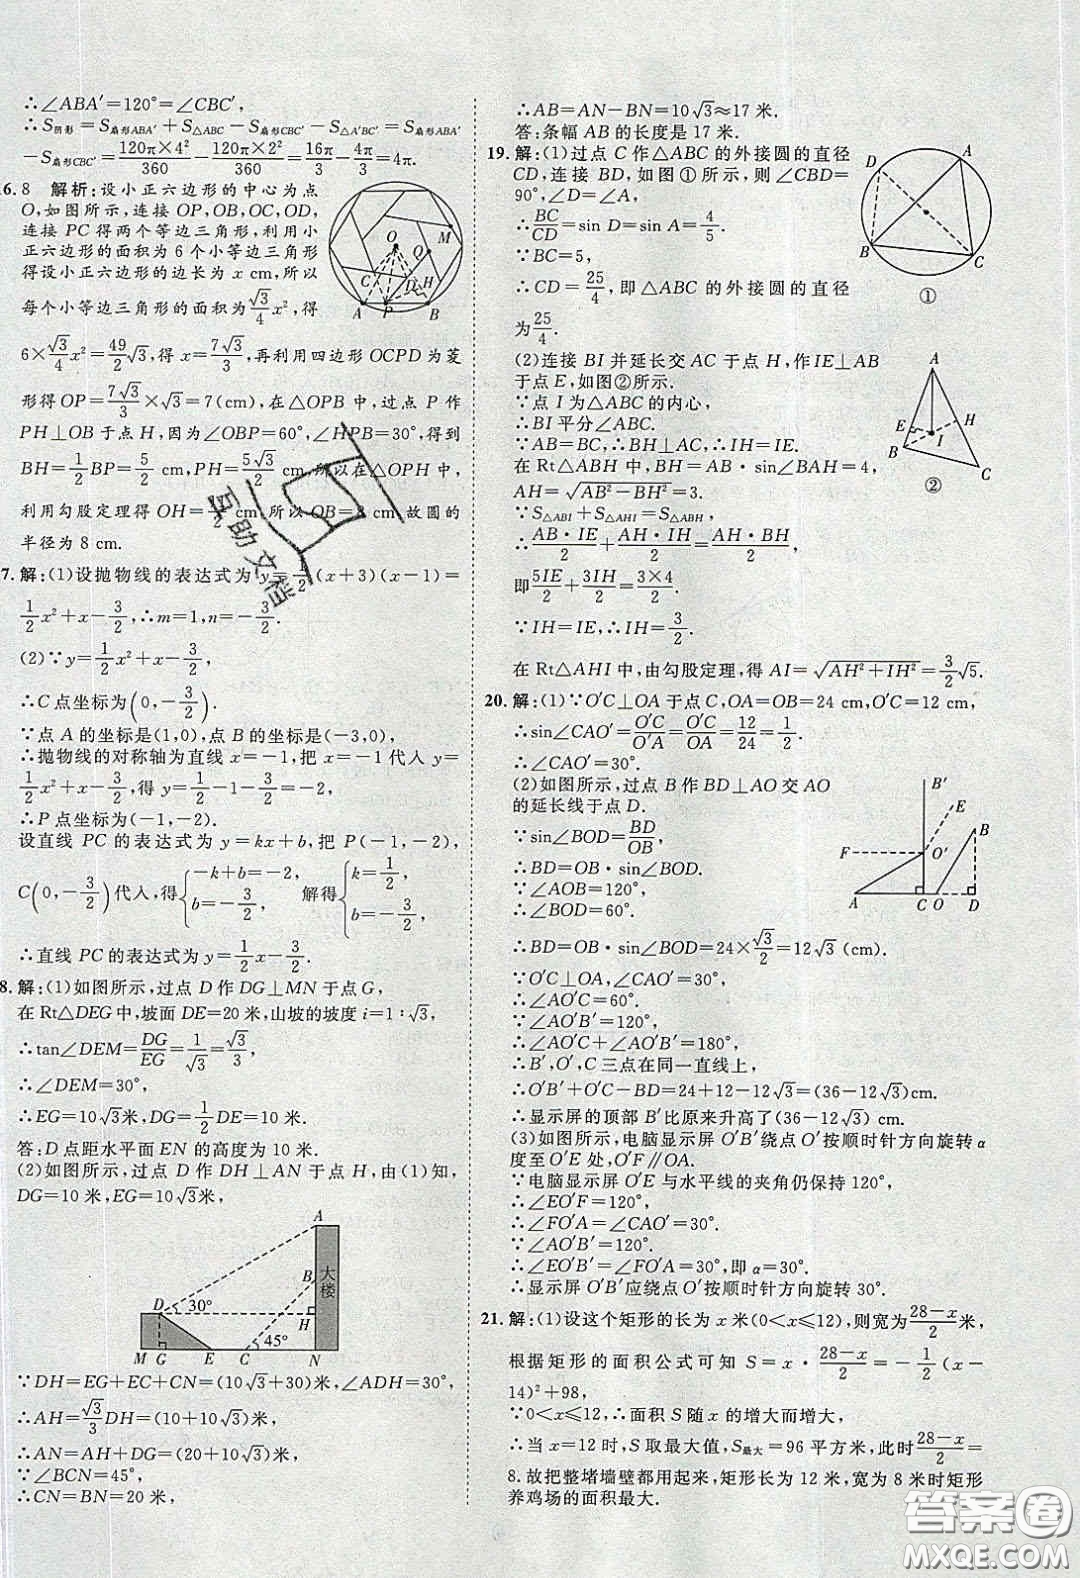 ∴∠ABA′=120°=∠CBC′,
∴S阴影=S扇形ABA′+S△ABC-S扇形CBC′-S△A′BC′=S扇形ABA′
-S扇形CBC′=120π×4²/360-120π×2²/360=16π/3-4π/3=4π.
6. 8 解析:设小正六边形的中心为点
O,如图所示,连接 OP,OB,OC,OD,
连接 PC 得两个等边三角形,利用小
正六边形的面积为 6 个小等边三角形
得设小正六边形的边长为 x cm,所以
每个小等边三角形的面积为√3/4x²,得
6×√3/4x²=49/2√3,得 x=7√3/3,再利用四边形 OCPD 为菱
形得 OP=7√3/3×√3=7(cm),在△OPB 中,过点 P 作
PH⊥OB 于点 H,因为∠OBP=60°,∠HPB=30°,得到
BH=1/2BP=5/2 cm,PH=5√3/2 cm,所以在△OPH 中,
利用勾股定理得 OH=11/2cm,所以 OB=8 cm,故圆的
半径为 8 cm.
O
M
Q
D
H
A
P
B
7. 解:(1)设抛物线的表达式为 y=1/2(x+3)(x-1)=
1/2x²+x-3/2,∴m=1,n=-3/2.
(2)∵y=1/2x²+x-3/2,
∴C 点坐标为(0,-3/2).
∵点 A 的坐标是(1,0),点 B 的坐标是(-3,0),
∴抛物线的对称轴为直线 x=-1,把 x=-1 代入 y=
1/2x²+x-3/2,得 y=1/2-1-3/2=-2,
∴P 点坐标为(-1,-2).
设直线 PC 的表达式为 y=kx+b,把 P(-1,-2),
C(0,-3/2)代入,得{-k+b=-2, b=-3/2, 解得{k=1/2, b=-3/2,
∴直线 PC 的表达式为 y=1/2x-3/2.
8. 解:(1)如图所示,过点 D 作 DG⊥MN 于点 G,
在 Rt△DEG 中,坡面 DE=20 米,山坡的坡度 i=1∶√3,
∴tan∠DEM=DG/EG=1/√3=√3/3,
∴∠DEM=30°,
∴EG=10√3米,DG=1/2DE=10 米.
答:D 点距水平面 EN 的高度为 10 米.
(2)如图所示,过点 D 作 DH⊥AN 于点 H,由(1)知,
DG=10 米,EG=10√3米,
A
大楼
B
D
30°
H
45°
M
G
E
C
N
∵DH=EG+EC+CN=(10√3+30)米,∠ADH=30°,
∴AH=√3/3DH=(10+10√3)米,
∴AN=AH+DG=(20+10√3)米,
∵∠BCN=45°,
∴CN=BN=20 米,
∴AB=AN-BN=10√3≈17 米.
答:条幅 AB 的长度是 17 米.
19. 解:(1)过点 C 作△ABC 的外接圆的直径
CD,连接 BD,如图①所示,则∠CBD=
90°,∠D=∠A,
∴BC/CD=sin D=sin A=4/5.
∵BC=5,
∴CD=25/4,即△ABC 的外接圆的直径
为25/4.
D
A
B
C
①
(2)连接 BI 并延长交 AC 于点 H,作IE⊥AB
于点 E,如图②所示.
∵点 I 为△ABC 的内心,
∴BI 平分∠ABC.
∵AB=BC,∴BH⊥AC,∴IH=IE.
在 Rt△ABH 中,BH=AB·sin∠BAH=4,
AH=√(AB²-BH²)=3.
∵S△ABI+S△AHI=S△ABH,
∴AB·IE/2+AH·IH/2=AH·BH/2,
即5IE/2+3IH/2=3×4/2.
∵IH=IE,∴IH=3/2.
在 Rt△AHI 中,由勾股定理,得 AI=√(AH²+IH²)=3/2√5.
A
H
E
I
B
C
②
20. 解:(1)∵O′C⊥OA 于点 C,OA=OB=24 cm,O′C=12 cm,
∴sin∠CAO′=O′C/O′A=O′C/OA=12/24=1/2.
∴∠CAO′=30°.
(2)如图所示,过点 B 作 BD⊥AO 交 AO
的延长线于点 D.
∵sin∠BOD=BD/OB,
∴BD=OB·sin∠BOD.
∵∠AOB=120°,
∴∠BOD=60°.
∴BD=OB·sin∠BOD=24×√3/2=12√3(cm).
B′
E
B
F
O′
A
C
O
D
∵O′C⊥OA,∠CAO′=30°,
∴∠AO′C=60°.
∵∠AO′B′=120°,
∴∠AO′C+∠AO′B′=180°.
∴B′,O′,C 三点在同一直线上.
∴O′B′+O′C-BD=24+12-12√3=(36-12√3)cm.
∴显示屏的顶部 B′比原来升高了(36-12√3)cm.
(3)如图所示,电脑显示屏 O′B′绕点 O′按顺时针方向旋转α
度至O′E 处,O′F∥OA.
∵电脑显示屏 O′E 与水平线的夹角仍保持 120°,
∴∠EO′F=120°.
∴∠FO′A=∠CAO′=30°.
∵∠AO′B′=120°,
∴∠EO′B′=∠FO′A=30°,即 α=30°.
∴显示屏 O′B′应绕点O′按顺时针方向旋转 30°.
21. 解:(1)设这个矩形的长为 x 米(0<x≤12),则宽为28-x/2米,
根据矩形的面积公式可知 S=x·28-x/2=-1/2(x-
14)²+98,
∵0<x≤12,∴面积 S 随 x 的增大而增大,
∴当 x=12 时,S 取最大值,S最大=96 平方米,此时28-x/2=
8.故把整堵墙壁都用起来,矩形长为 12 米,宽为 8 米时矩形
养鸡场的面积最大.
互助文档
答案圈
MXQE.COM